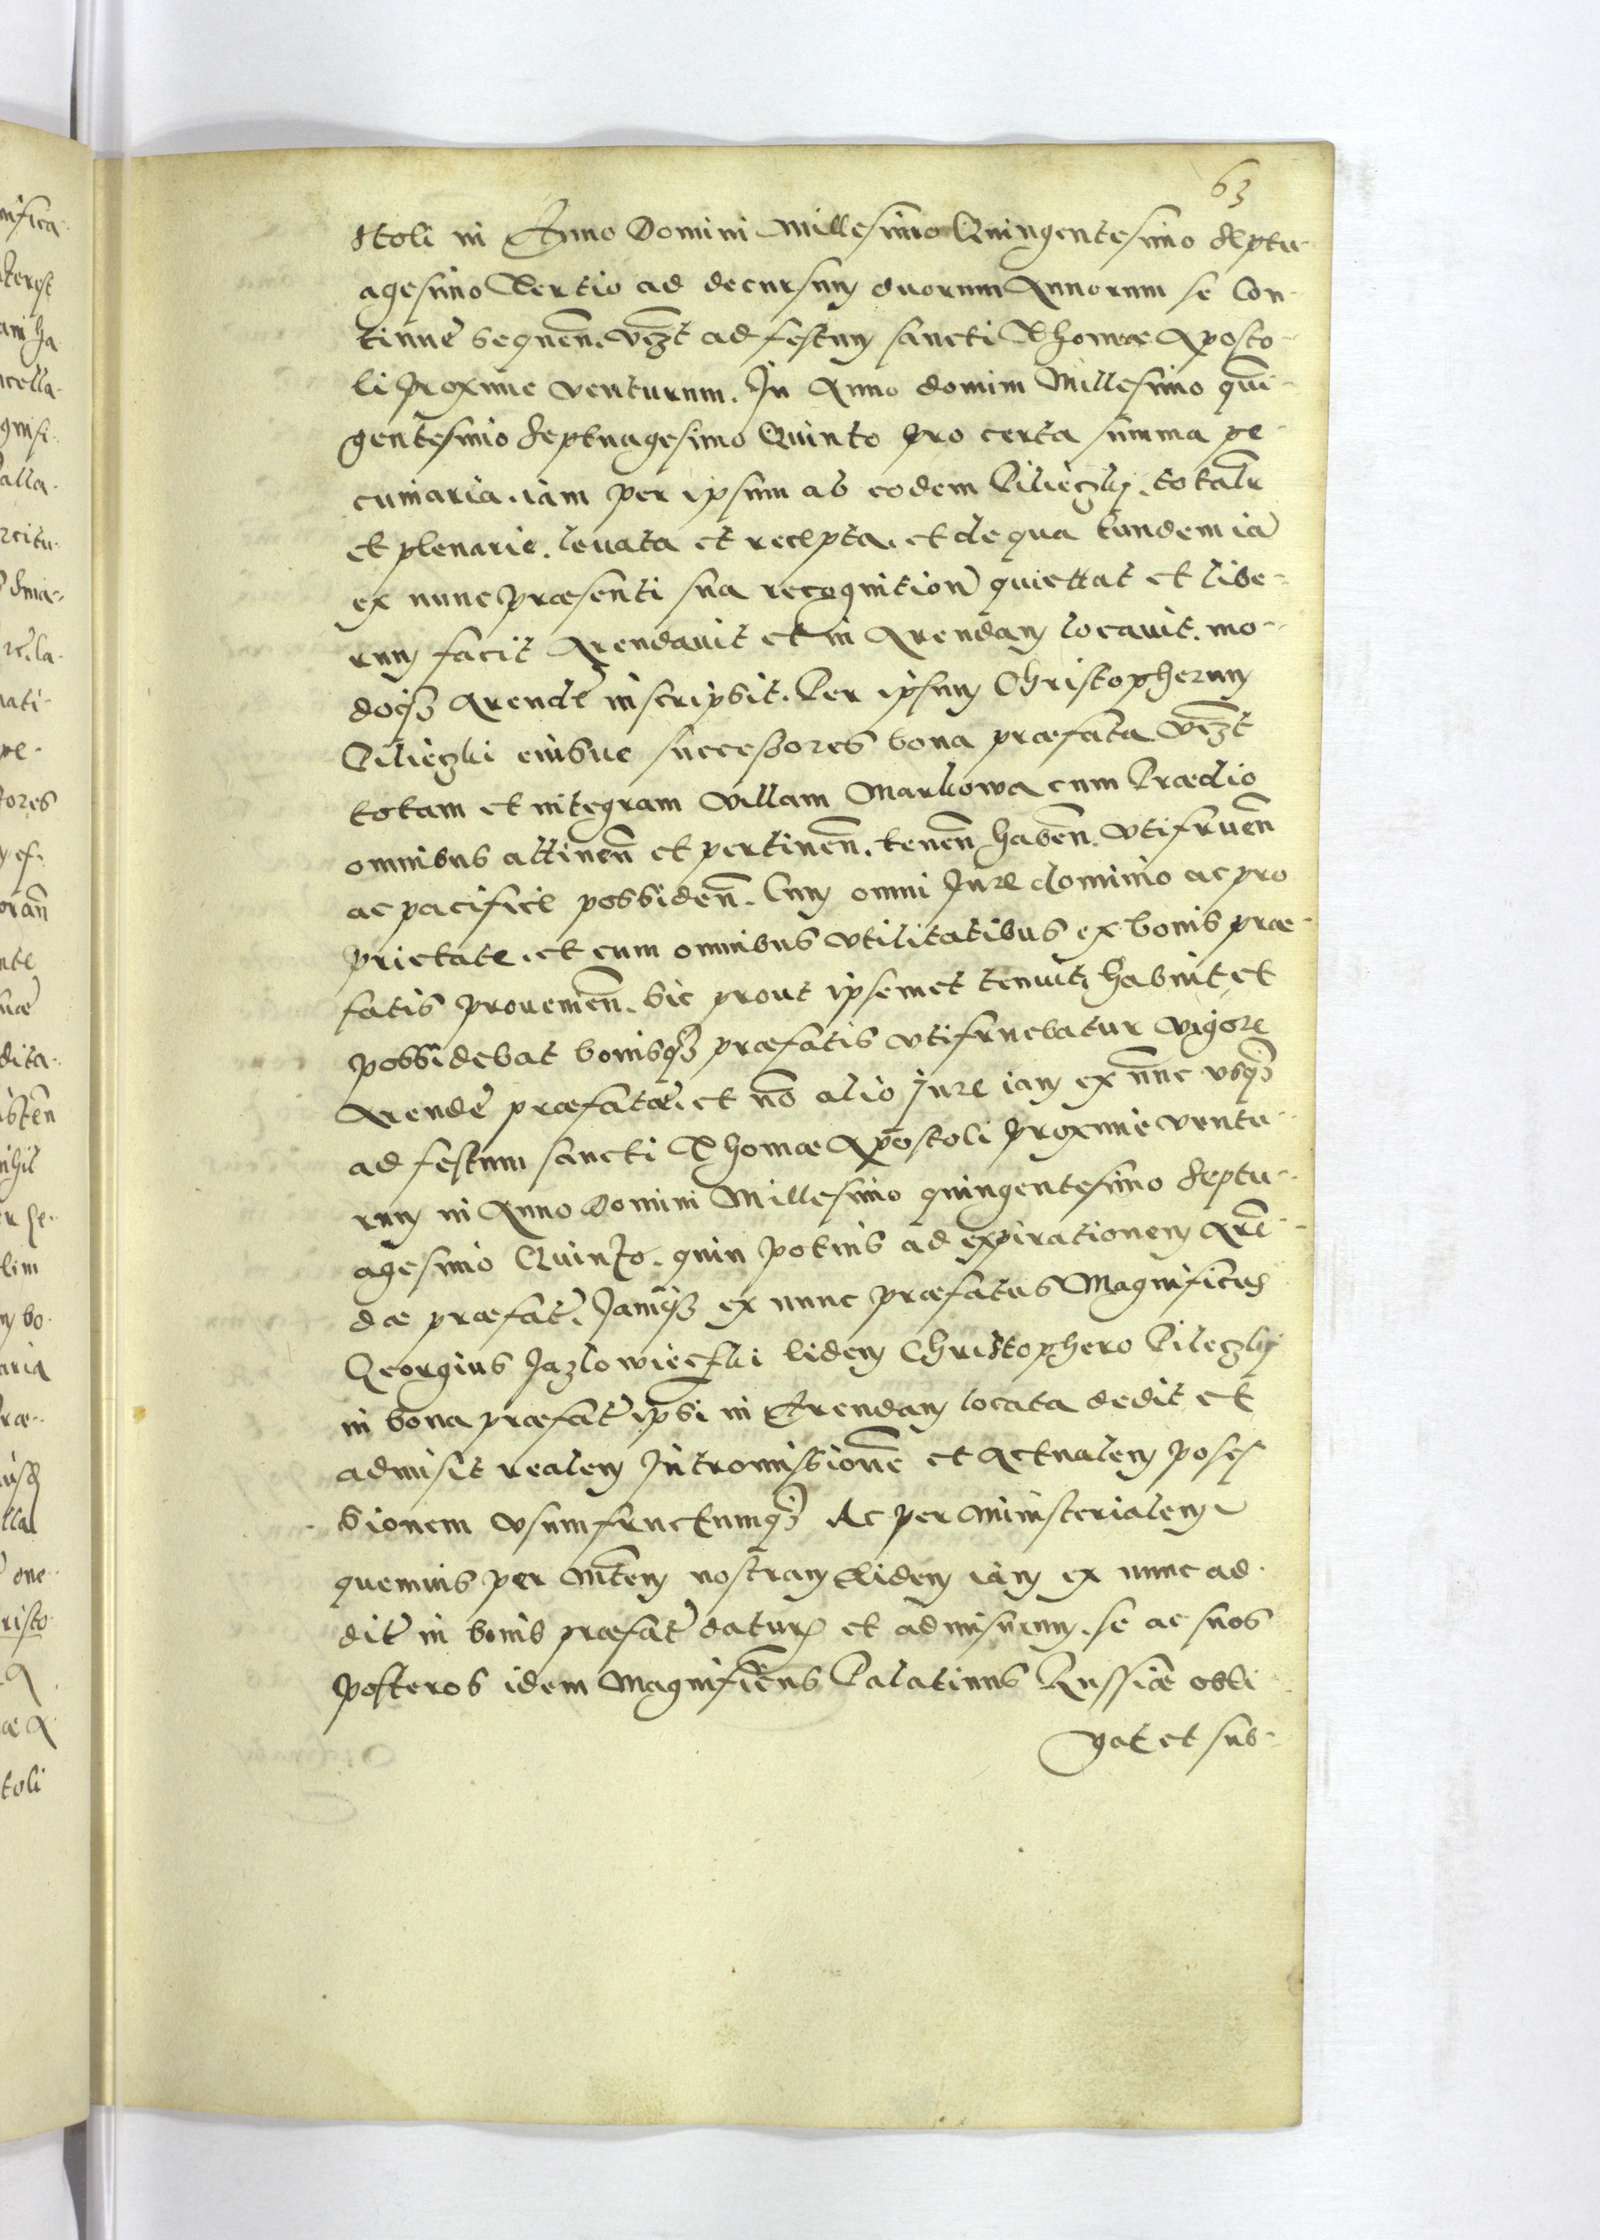 63
stoli in Anno Domini Millesimo Quingentesimo septu-
agesimo Tertio ad decursum duorum Annorum se con-
tinuè sequen̄. vizt ad festum sancti Thomæ Aposto-
li proxime venturum. In Anno domini Millesimo quī-
gentesimo septuagesimo Quinto pro certa summa pe-
cuniaria. iam per ipsum ab eodem Pilieczky. totalr̃
et plenarie. levata et recepta. et de qua tandem iā
ex nunc præsenti sua recognition̄ quiettat et libe-
rum facit Arendauit et in Arendam locauit. mo-
doq3 Arendę inscripsit. Per ipsum Christopherum
Pilieczki eiusue successores bona præfata vizt
totam et integram villam Markowa cum Prædio
omnibus attinen̄ et pertinen̄. tenen̄ haben̄. vtifruen̄
ac pacifice possiden̄. Cum omni Jure dominio ac pro
prietate. et cum omnibus vtilitatibus ex bonis præ-
fatis prouenien̄. sic prout ipsemet tenuit, habuit et
possidebat bonisq3 præfatis vtifruebatur vigore
Arendę præfatæ. et nō alio Jure iam ex nūnc vsq3
ad festum sancti Thomæ Apostoli proxime ventu-
rum in Anno Domini Millesimo quingentesimo septu-
agesimo Quinto. quin potius ad expirationem Arē-
dæ præfat̃. Jamq3 ex nunc præfatus Magnificus
Georgius Jazlowieczki eidem Christophero Pileczky
in bona præfat̃ ipsi in Arendam locata dedit et
admisit realem Intromissionē et Actualem poses
sionem vsumfructumq3 Ac per Ministerialem
quemuis per Mtem nostram eidem iam ex nunc ad-
dit̃ in bonis præfat̃ datur̃ et admissurum. se ac suos
posteros idem Magnificus Palatinus Russiæ obli
gat et sub-